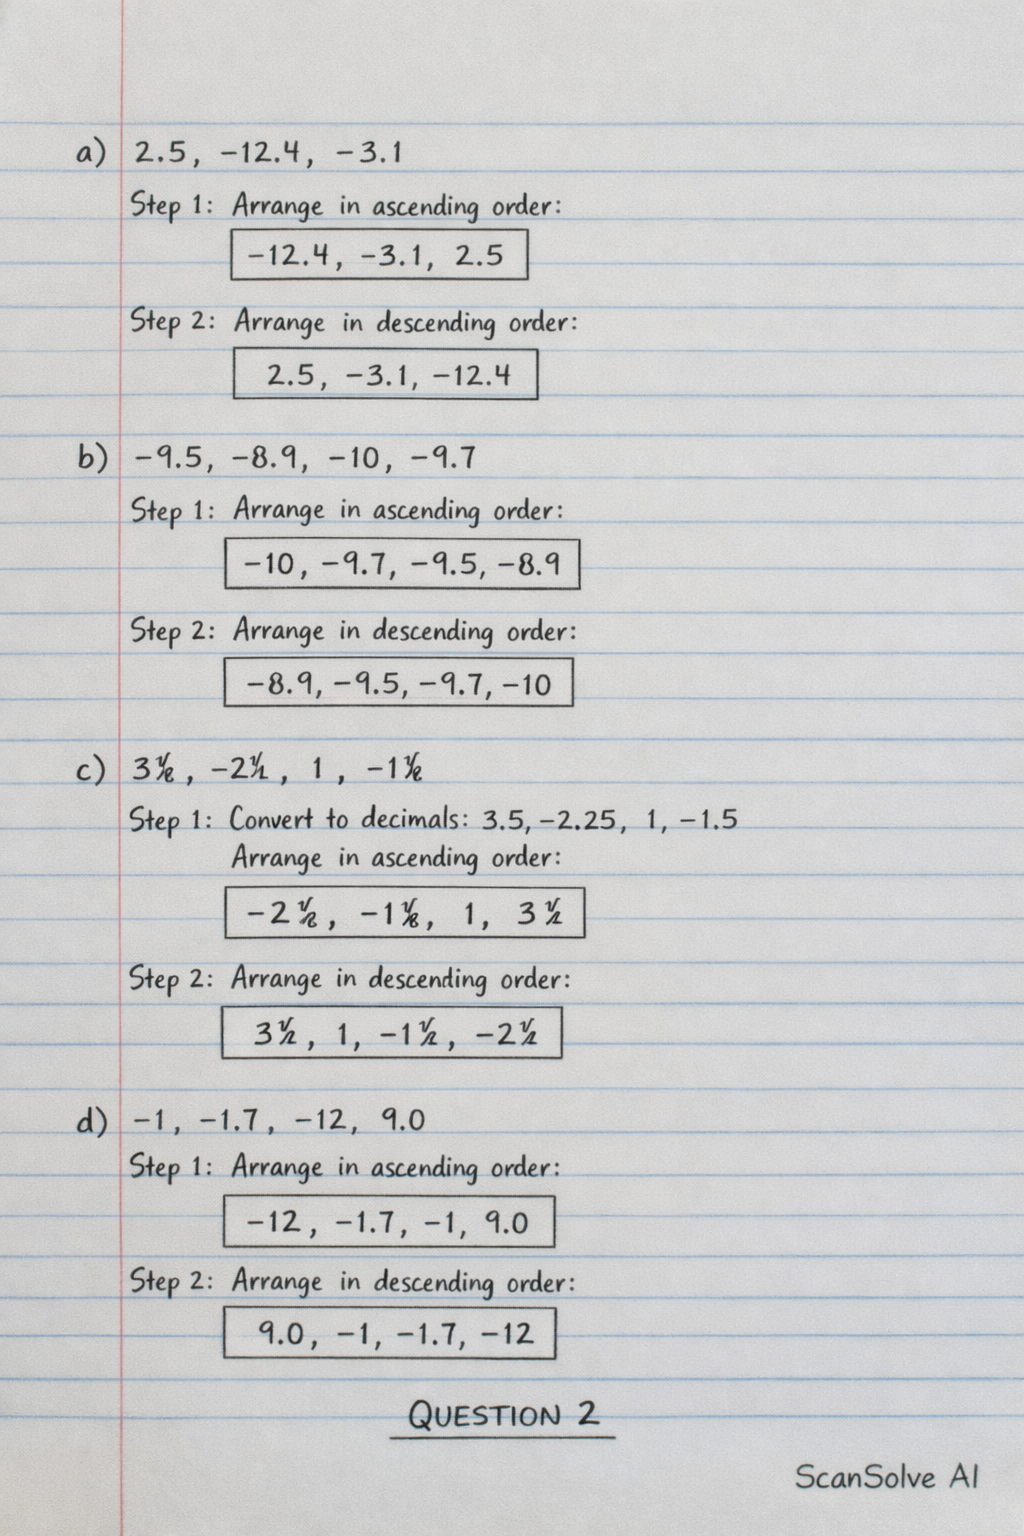 a) 2.5, -12.4, -3.1
Step 1: Arrange in ascending order:
-12.4, -3.1, 2.5
Step 2: Arrange in descending order:
2.5, -3.1, -12.4
b) -9.5, -8.9, -10, -9.7
Step 1: Arrange in ascending order:
-10, -9.7, -9.5, -8.9
Step 2: Arrange in descending order:
-8.9, -9.5, -9.7, -10
c) 3, -2, 1, -1
Step 1: Convert to decimals: 3.5, -2.25, 1, -1.5
Arrange in ascending order:
-2, -1, 1, 3 ½
Step 2: Arrange in descending order:
3 ½, 1, -1 ½, -2 ½
d) -1, -1.7, -12, 9.0
Step 1: Arrange in ascending order:
-12, -1.7, -1, 9.0
Step 2: Arrange in descending order:
9.0, -1, -1.7, -12
QUESTION 2
ScanSolve AI